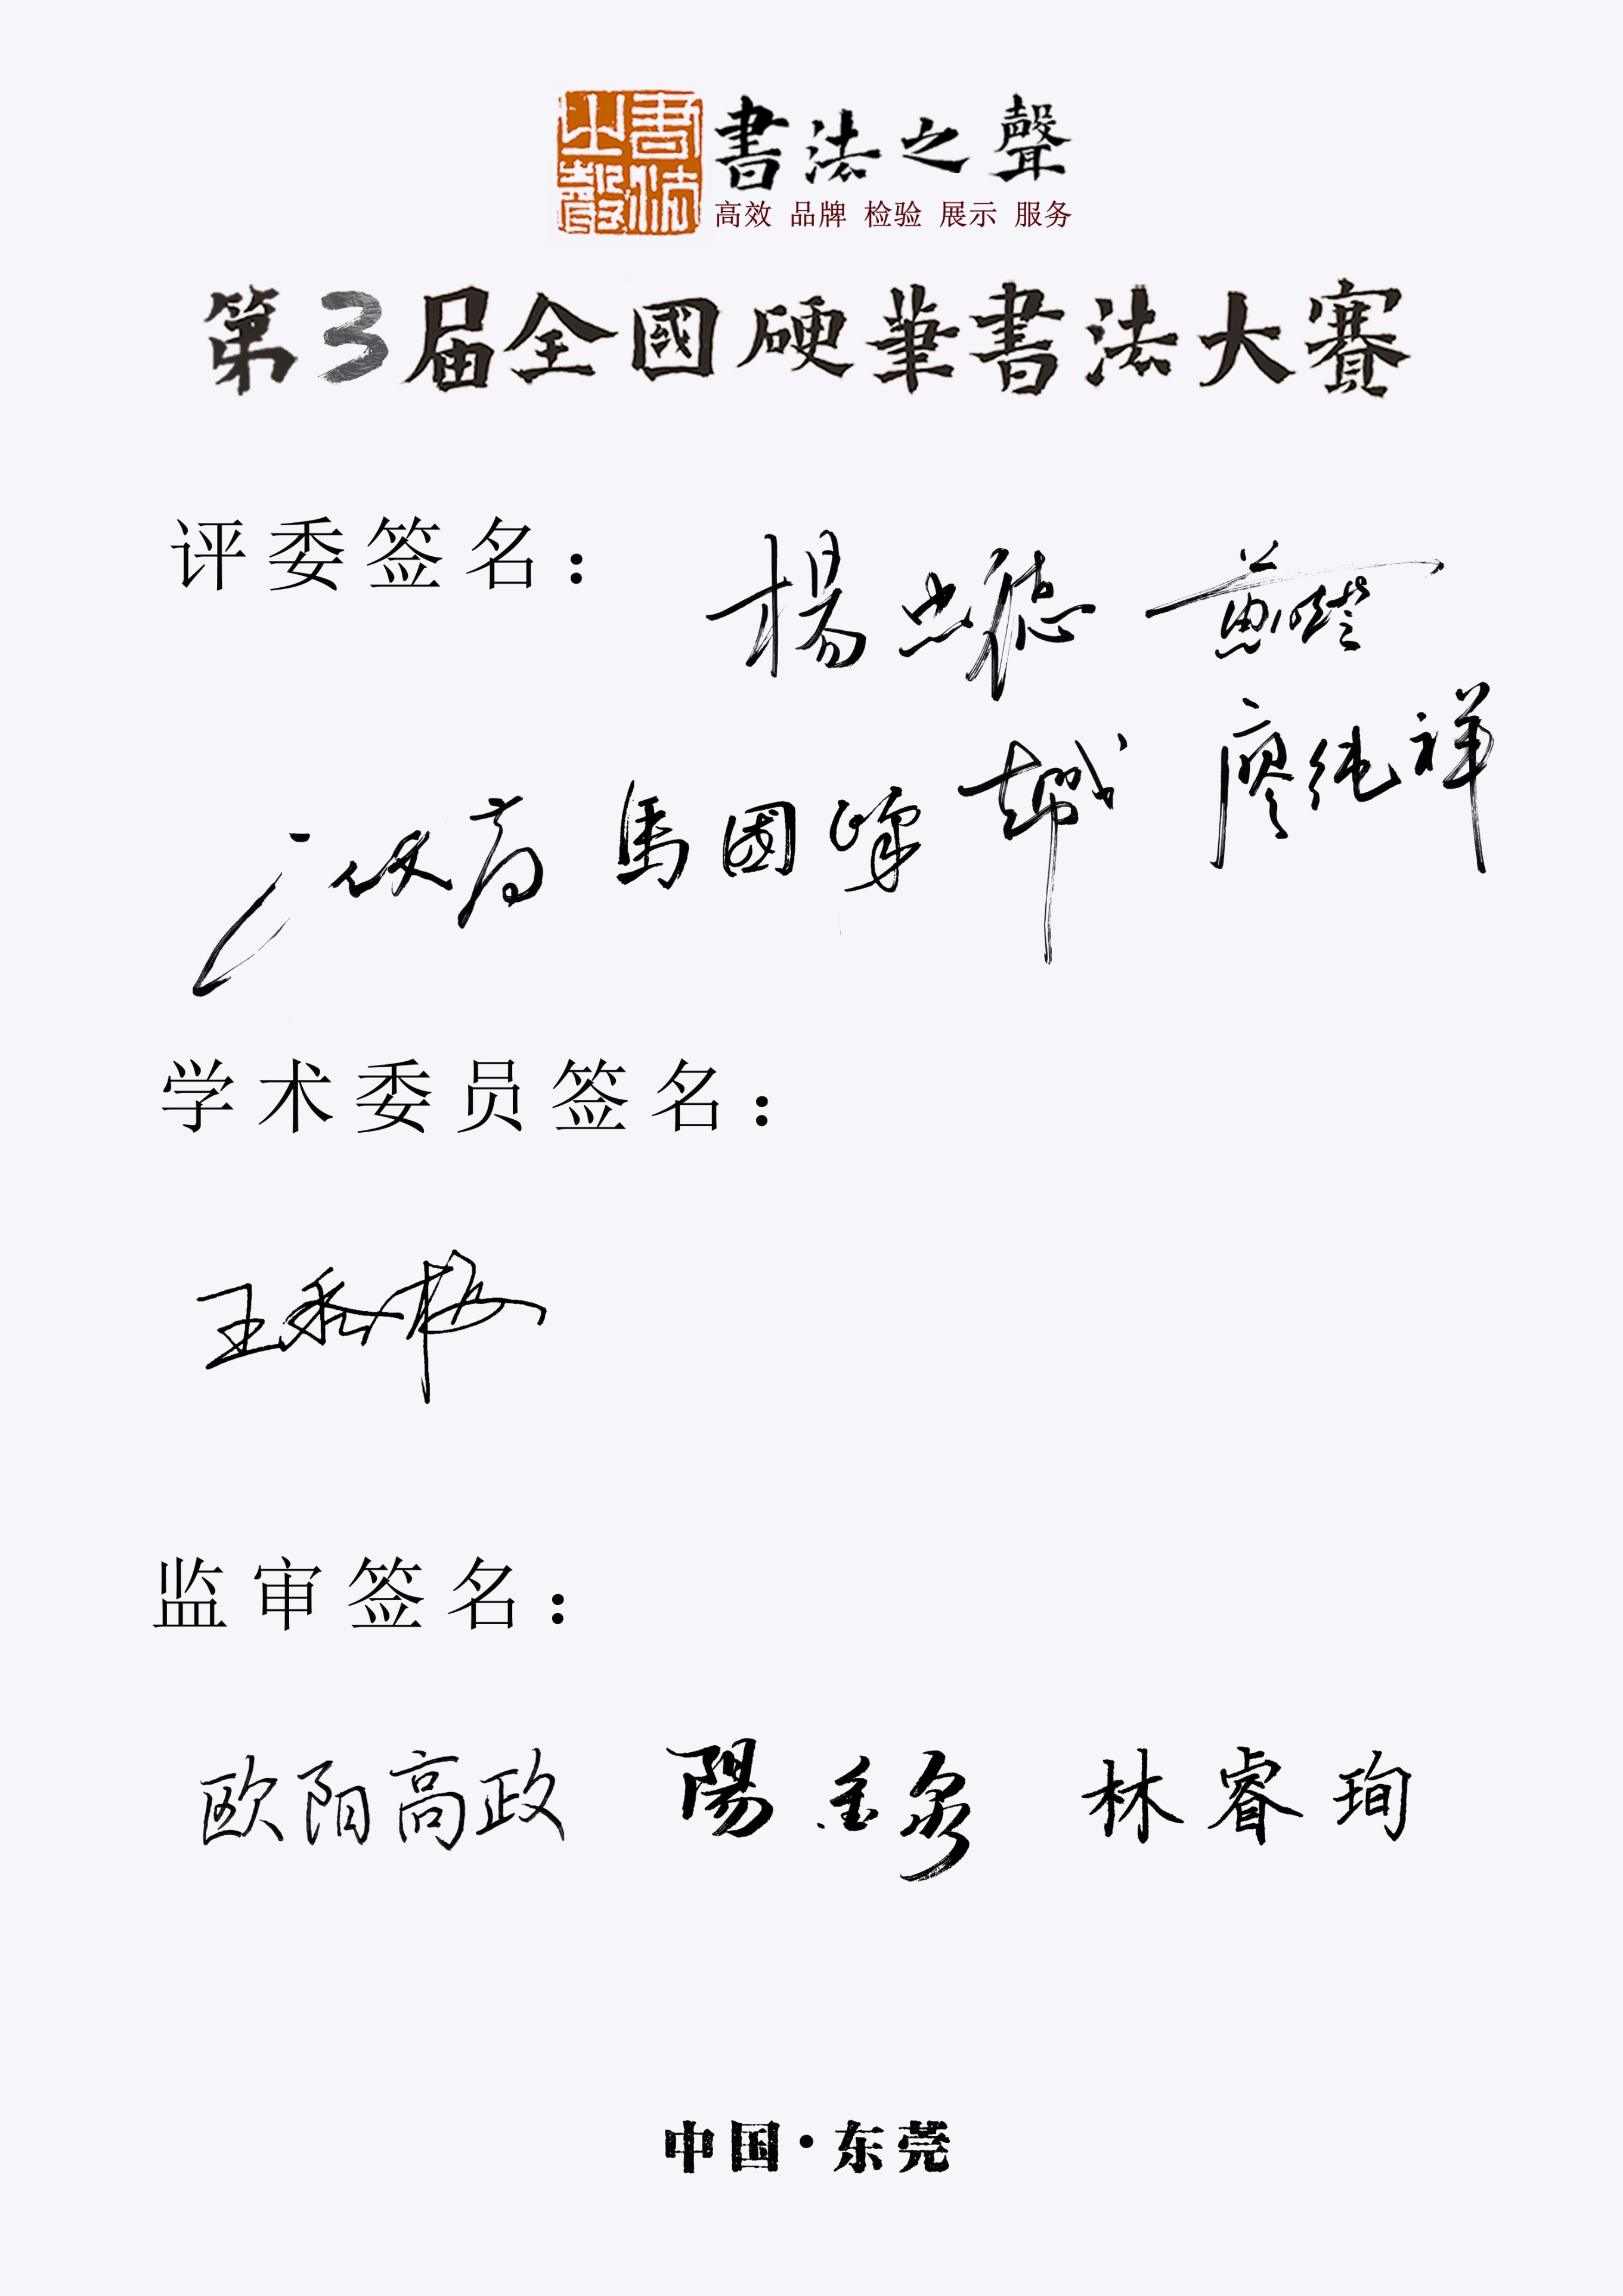 書法之聲
書法之聲
高效 品牌 检验 展示 服务
第3届全國硬筆書法大賽
评委签名：
楊忠德
廖纯祥
馬國峰
学术委员签名：
王香梅
监审签名：
欧阳高政 陽金泉 林睿珣
中国·东莞